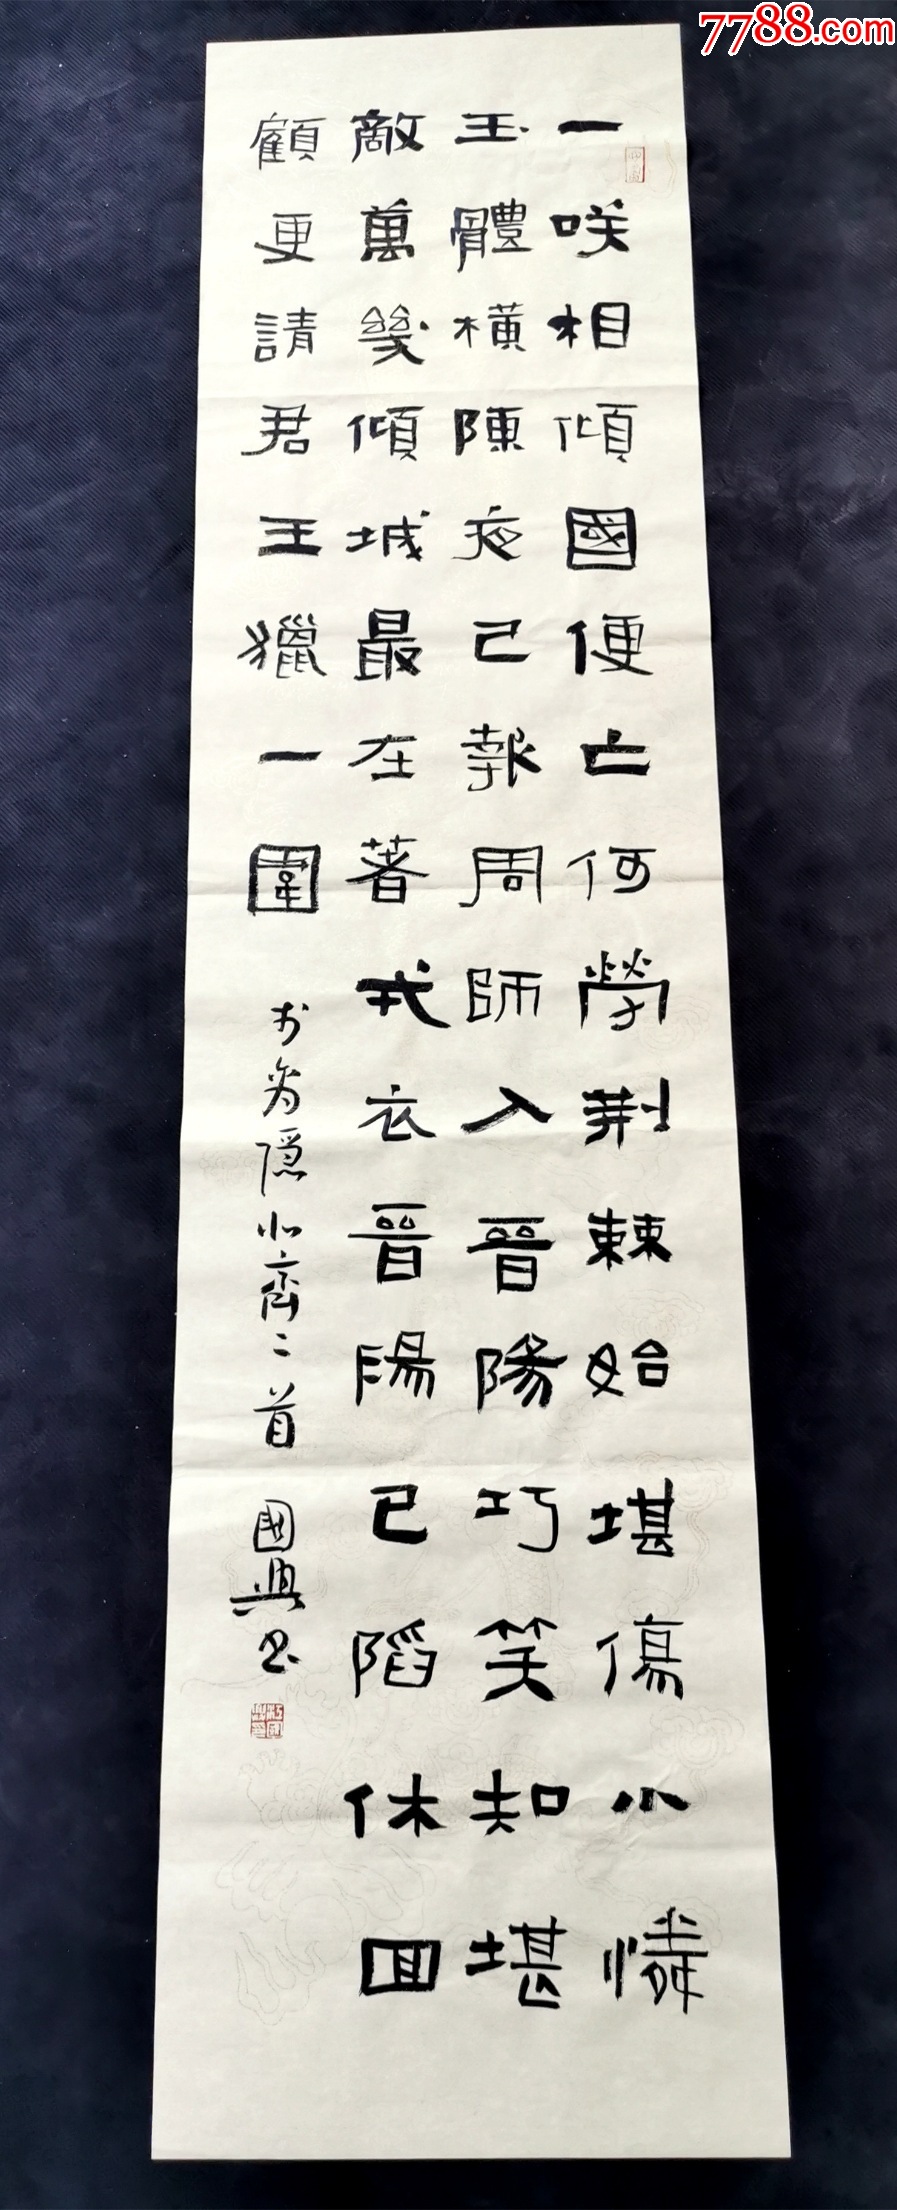 7788.com
一咲相傾國便亡何勞荊棘始堪傷小憐
玉體横陳夜已報周師入晉陽巧笑知堪
敵萬幾傾城最在著戎衣晉陽已陷休回
顧更請君王獵一圍
李商隐北齊二首 國興书